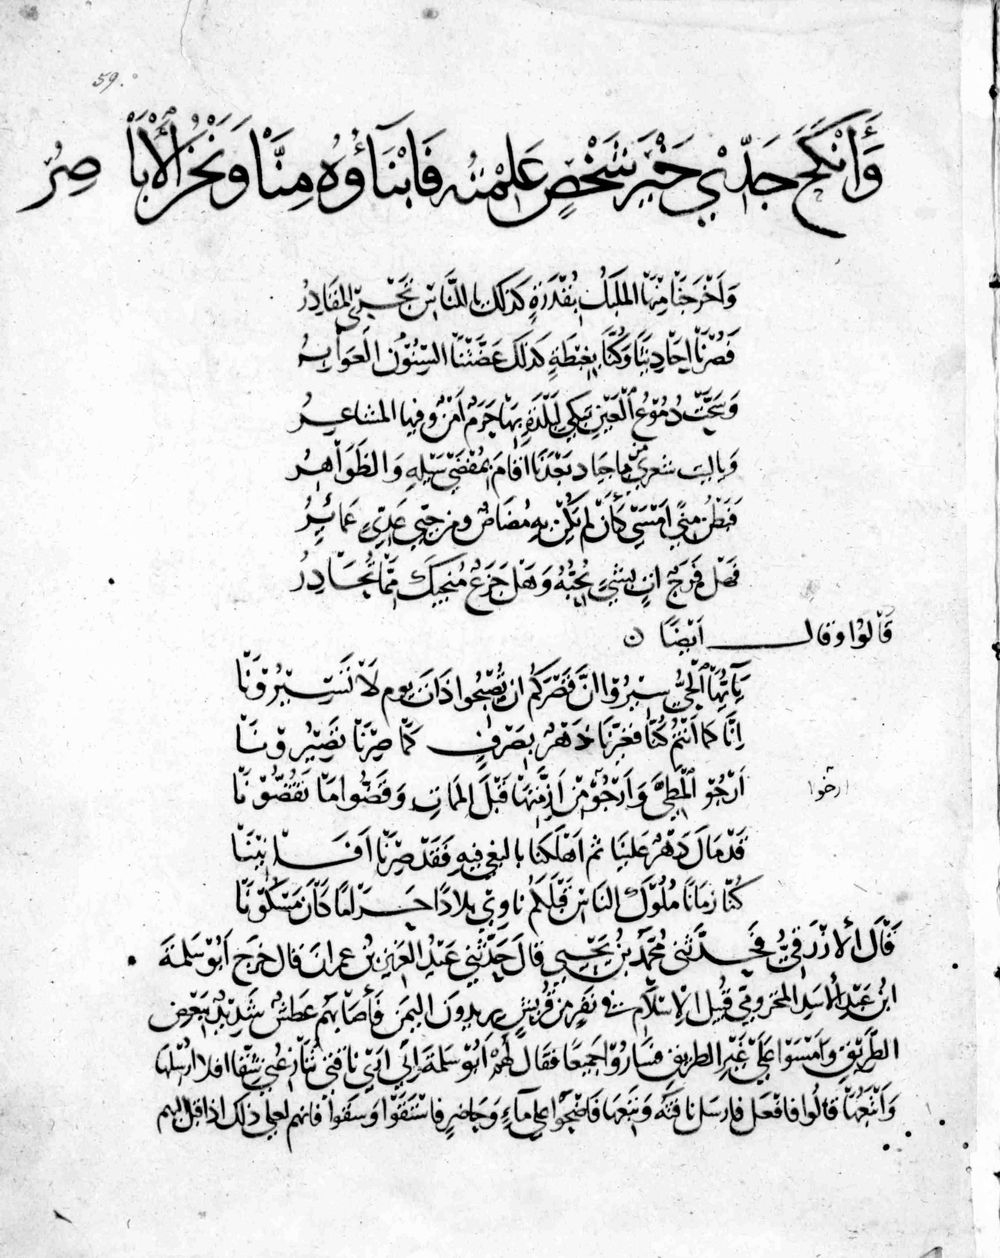 59.
وَأَنْكَحَ جَدِّي خَيْرَ شَخْصٍ عَلِمْتُهُ فَأَبْنَآؤُهُ مِنَّا وَنَحْنُ الْأَبَاصِرُ
وَاخْرَجَنْا مِنْهَا المَلِيكُ بِقُدْرَةٍ كذلك يا للنَّاسِ تَجْرِي المقَادِرُ
فَصُرْنَا احَادِيثًا وَكُنَّا بِغِبْطَةٍ كَذلكَ عَضَّتْنَا السِّنُوْنَ الْغَوابِرُ
وَسَحَّتْ دُمُوْعُ الْعَيْنِ تبكِي لِبَلْدَةٍ بِهَا حَرَمٌ اَمْنٌ وفيها المشاعرُ
وياليت شعري من باجياد بَعْدَنَا اقامَ بمُفْضَى سَيْلِهِ وَالظَوَاهِرُ
فَبَطْنُ مِنًى اَمْسَى كَأَنْ لَم يَكُنْ بِهِ مُضَاضٌ ومن حَيَّيْ عَدِيٍّ عَمَائِرُ
فهَل فَرَجٌ اتٍ بشيْءٍ نُحِبُّهُ وَهَل جَزَعٌ مُنجيكَ مِمَّا تُحَاذِرُ
قَالُوْا وقال اَيْضًا ن
يَآيُّهَا الْحَيُّ سِيرُوْا انَّ قَصْرَكُم ان تُصْبِحُوا ذَاتَ يوم لَا تَسِيْرُوْنَا
انَّا كما انْتُمُ كُنَّا فغيَّرَنَا دَهْرٌ بصَرْفٍ كمَا صِرْنَا تَصِيْرُوْنَا
اَزْجُوْا الْمَطِيَّ وَاَرْخُوْا مِنْ اَزِمَّتِهَا قَبْلَ المَمَاتِ وَقَضُّوا مَا تَقُضُّوْنَا
ارخوا
قَدْ مَالَ دَهْرٌ عَلَيْنَا ثم اَهْلَكَنَا بالبغي فيهِ فَقَدْ صِرْنَا اَفَانِيْنَا
كُنَّا زمَانًا مُلُوْكَ الناسِ قَبْلَكُم ناوي بلادًا حَرَامًا كَانَ مَسْكُوْنَا
قَالَ الازْرَقِيُّ فحَدَّثنى مُحَمَّدُ بنُ يَحْيَى قالَ حَدَّثَنِي عَبْدُ العَزيزِ بنُ عمرانَ قال خرجَ اَبُوْ سَلمَةَ
ابنُ عَبْدِ الاسَدِ المَخزوميُّ قُبَيْل الاِسْلَامِ فى نفرٍ من قُرَيْشٍ يريدونَ اليمَن فَأَصابَهُم عَطَشٌ شَدِيْدٌ ببَعْضِ
الطَّرِيْقِ وَاَمْسَوْا عَلَى غَيْرِ الطريقِ فسَارُوْا جميعًا فقَالَ لهُم اَبُوْ سلمةَ اِنّي اَرَى ناقتي تُنَازِعُني شِقًّا افلا ارْسلها
وَاَتْبَعُهَا قالُوا فافْعَل فارسلَ ناقتَه وتَبِعَها فاصْبَحُوْا على مآءٍ وَحَاضِرٍ فاسْتَقَوْا وَسقَوْا فانهم لعلى ذلك اذ اقبلَ اليهم